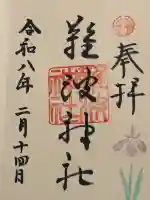 奉拝
難波神社
令和八年 二月十四日